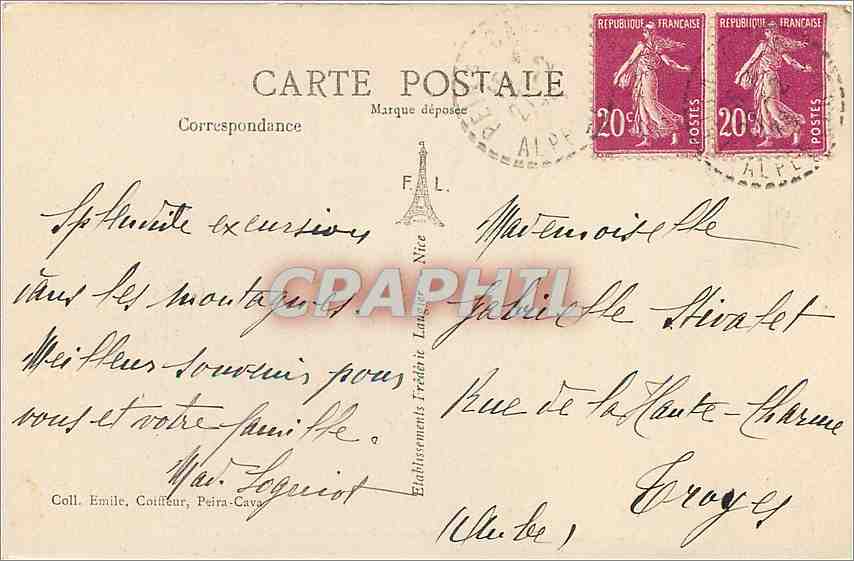 CARTE POSTALE
Marque déposée
Correspondance
F. L.
RÉPUBLIQUE FRANÇAISE
20c
POSTES
RÉPUBLIQUE FRANÇAISE
20c
POSTES
ALPE
ALPE
Splendide excursion
dans les montagnes.
Meilleurs souvenirs pour
vous et votre famille.
Mad.
Coll. Emile, Coiffeur, Peira-Cava
Etablissements Frédéric Laugier, Nice
CPAPHIL
Mademoiselle
Gabrielle Stivalet
Rue de la Haute-Charme
Troyes
(Aube)